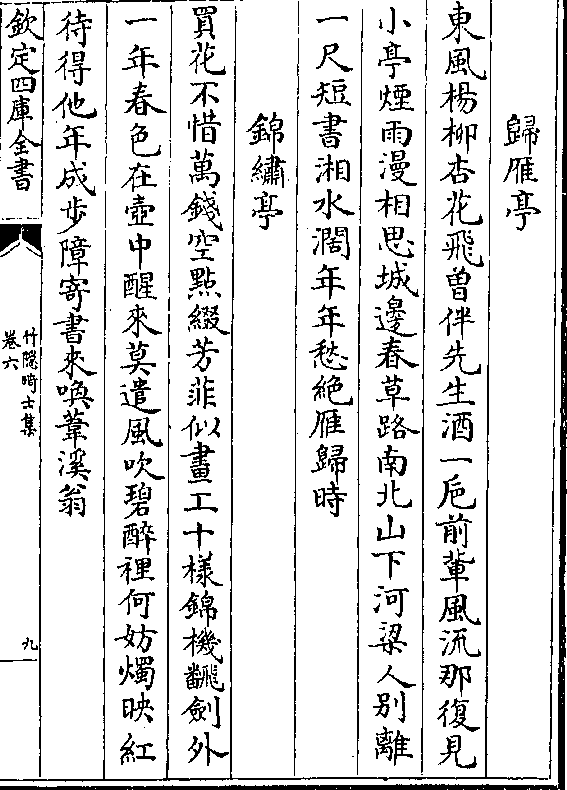 歸雁亭
東風楊柳杏花飛曽伴先生酒一巵前輩風流那復見
小亭煙雨漫相思城邊春草路南北山下河梁人别離
一尺短書湘水濶年年愁絶雁歸時
錦繡亭
買花不惜萬錢空點綴芳菲似畫工十樣錦機飜劍外
一年春色在壺中醒來莫遣風吹碧醉裡何妨燭映紅
待得他年成步障寄書來喚葦溪翁
欽定四庫全書
竹隠畸士集
卷六
九